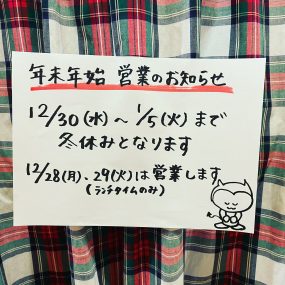 年末年始 営業のお知らせ
12/30(水)～1/5(火)まで
冬休みとなります
12/28(月)、29(火)は営業します
(ランチタイムのみ)